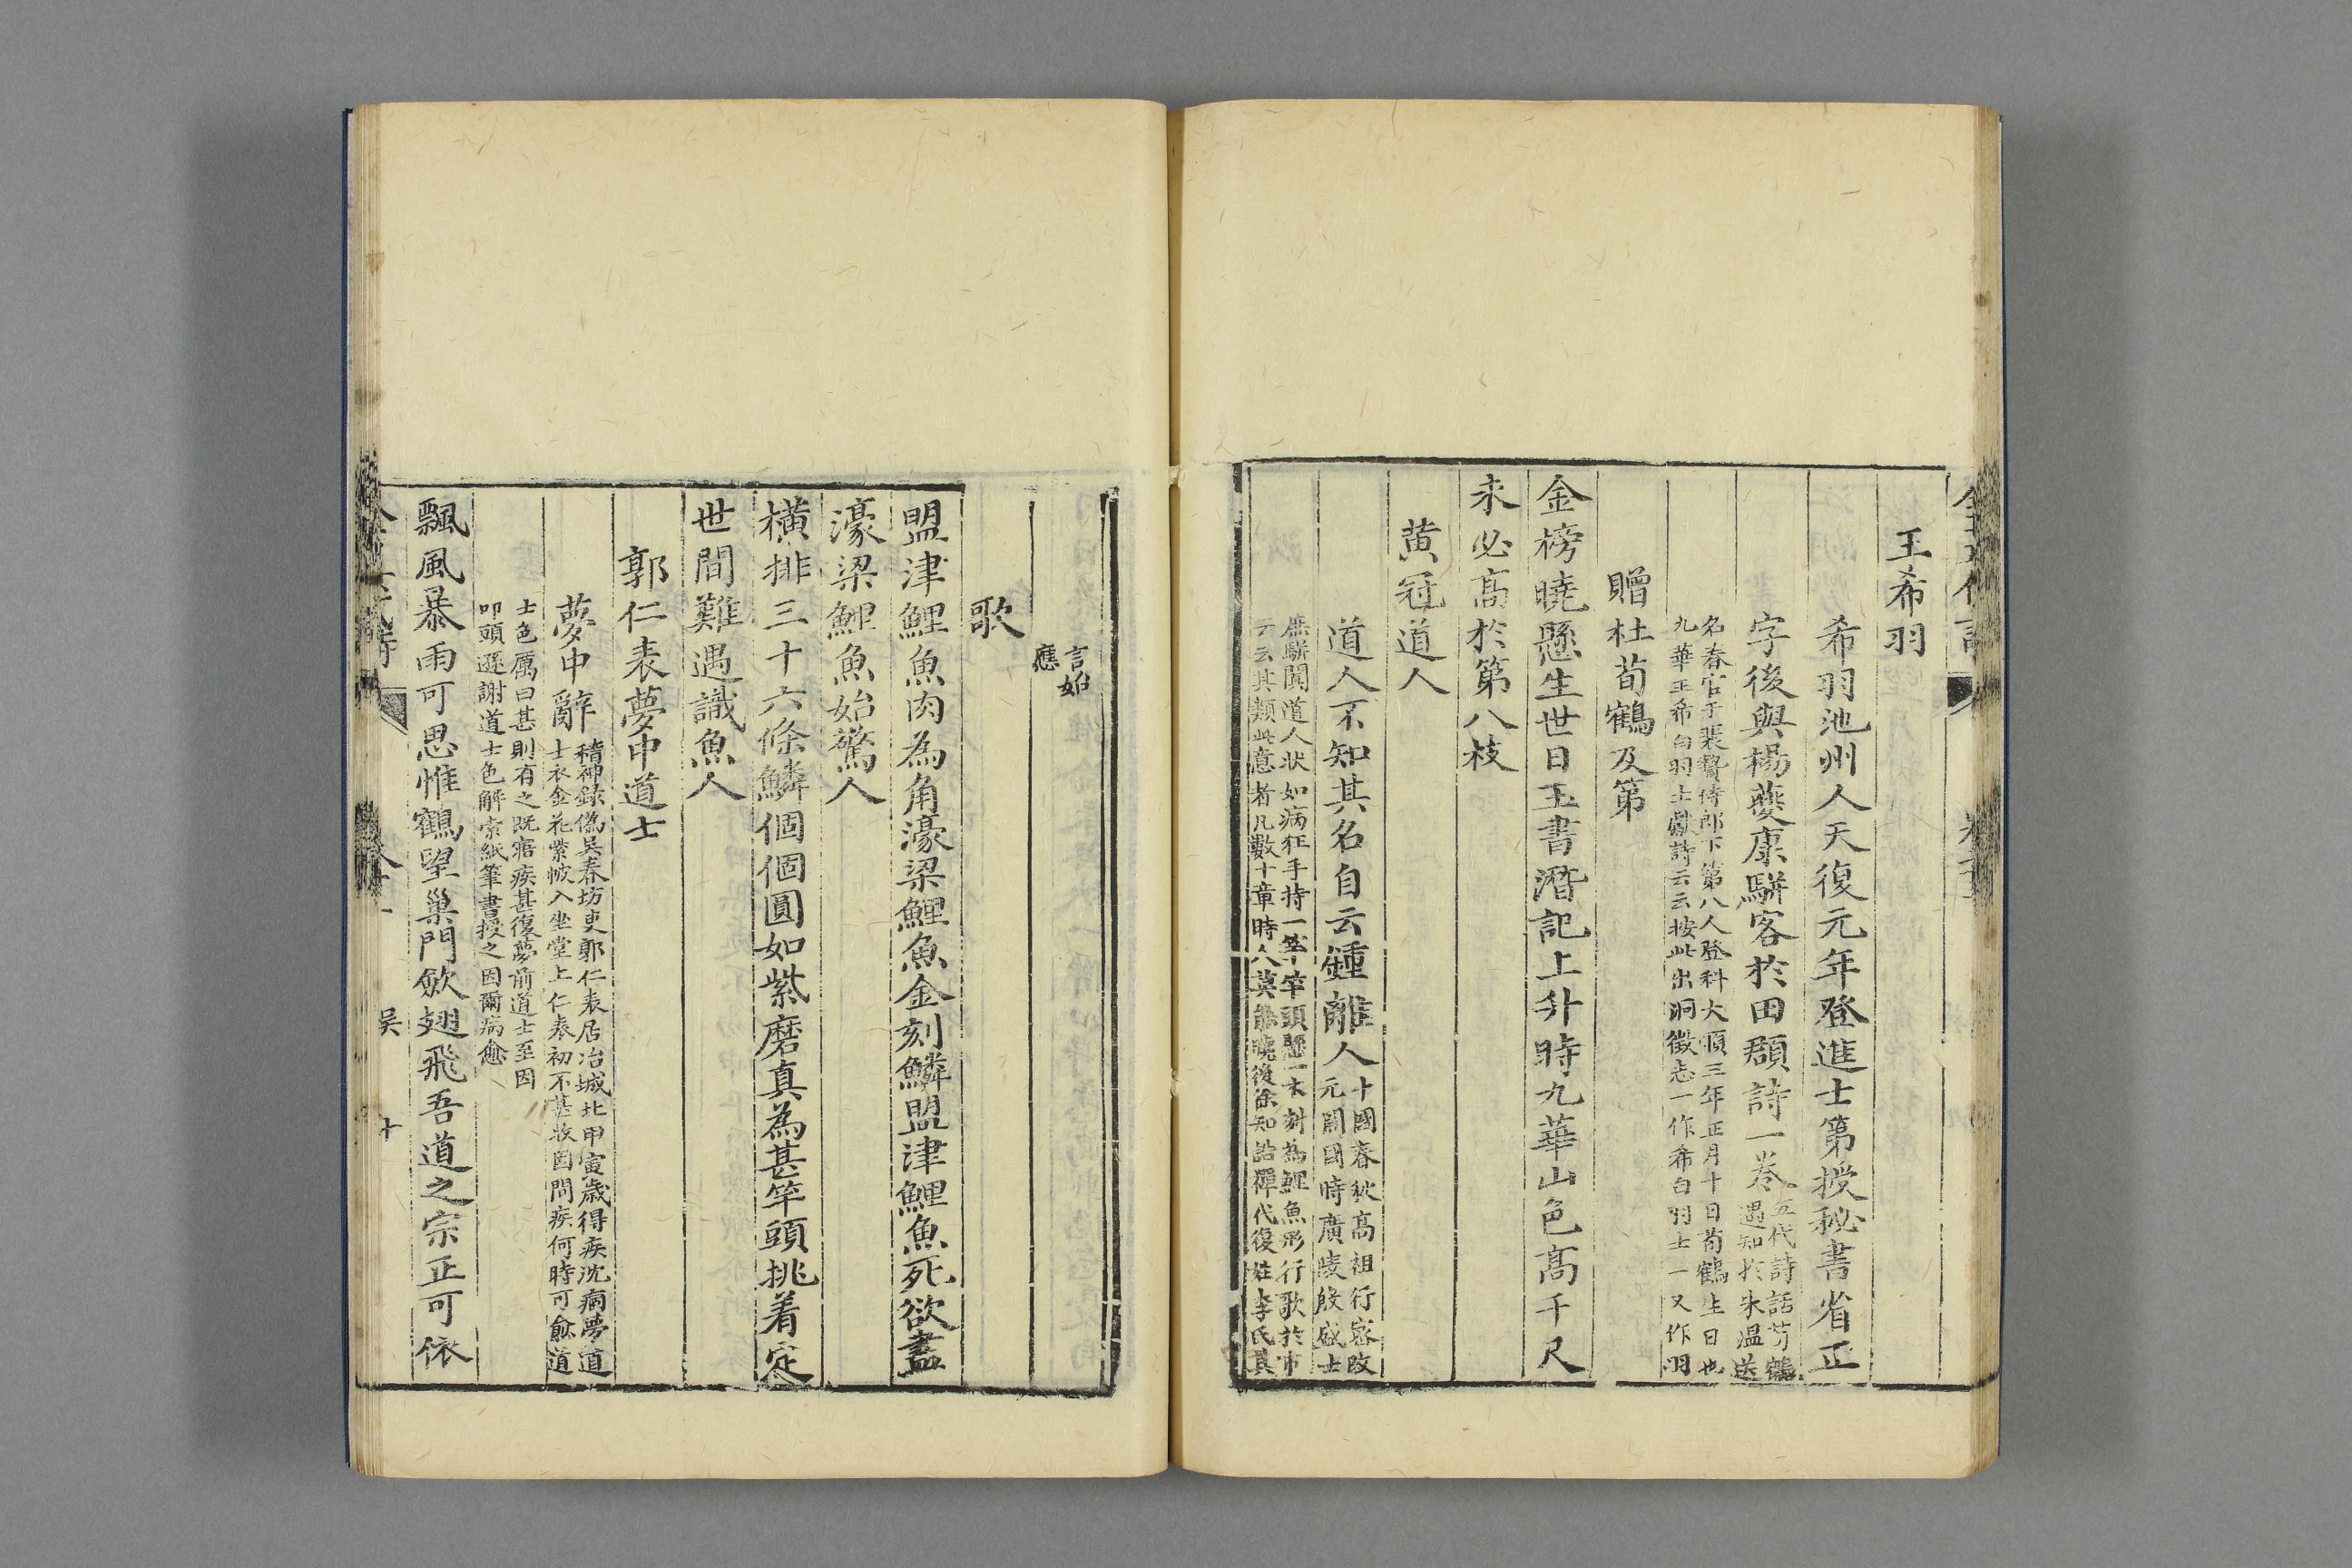 王希羽
希羽池州人天復元年登進士第授秘書省正
字後與楊夔康駢客於田頵詩一卷
五代詩話荀鶴
遇知於朱溫送
名春官于裴贄侍郎下第八人登科大順三年正月十日荀鶴生日也
九華王希白羽士獻詩云云按此出洞微志一作希白羽士一又作羽
贈杜荀鶴及第
金榜曉懸生世日玉書潛記上升時九華山色高千尺
未必高於第八枝
黃冠道人
道人不知其名自云鍾離人
十國春秋高祖行密改
元開國時廣陵殷盛士
庶駢闐道人狀如病狂手持一竿竿頭懸一木刻為鯉魚形行歌於市
云云其類此意者凡數十章時人莫能曉後徐知誥禪代復姓李氏其
言始
應
歌
盟津鯉魚肉為角濠梁鯉魚金刻鱗盟津鯉魚死欲盡
濠梁鯉魚始驚人
橫排三十六條鱗個個圓如紫磨真為甚竿頭挑着定
世間難遇識魚人
郭仁表夢中道士
夢中辭
稽神錄偽吳春坊吏郭仁表居冶城北甲寅歲得疾沈痼夢道
士衣金花紫帔入坐堂上仁表初不甚敬因問疾何時可愈道
士色厲曰甚則有之既寤疾甚復夢前道士至因
叩頭遜謝道士色解索紙筆書授之因爾病愈
飄風暴雨可思惟鶴望巢門斂翅飛吾道之宗正可依
吳
十